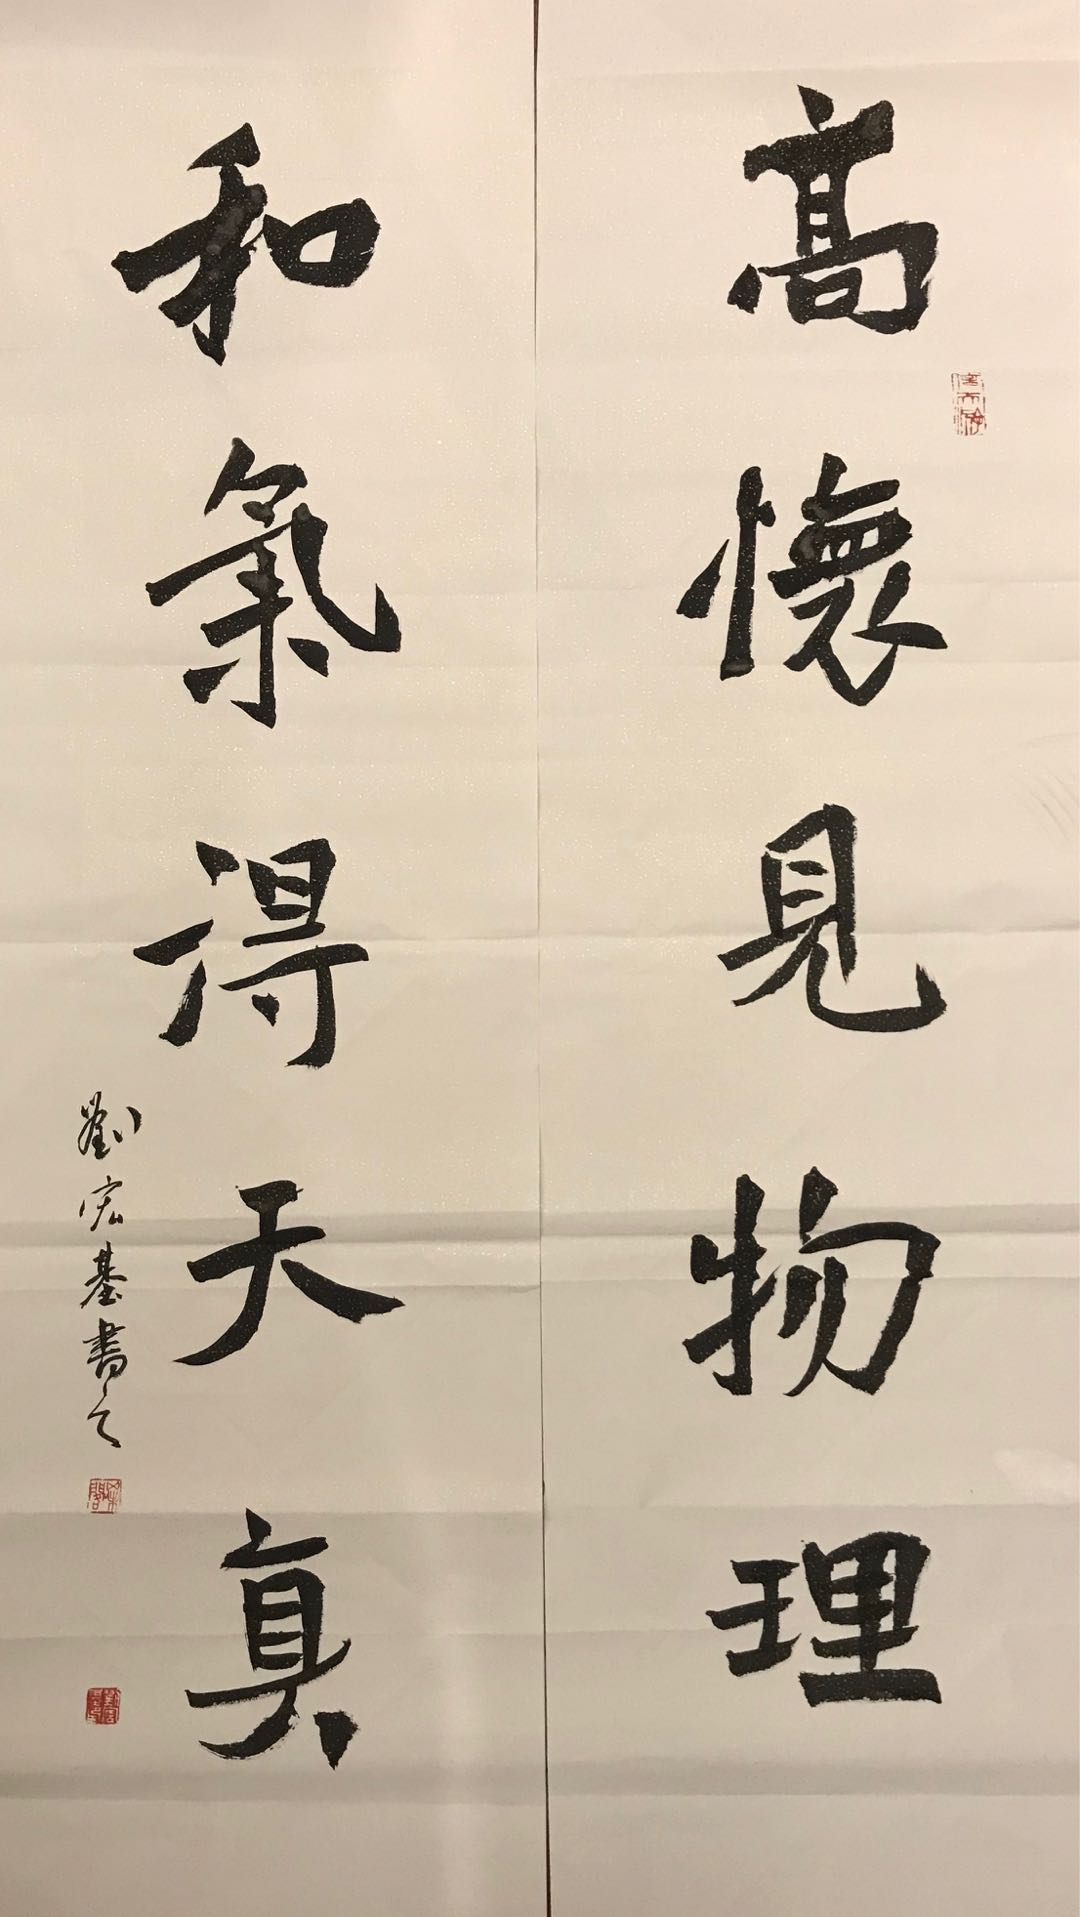 高懷見物理
和氣得天真
劉宏基書之